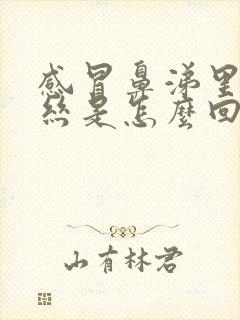 感冒鼻涕里
丝是怎麽回
山有林君